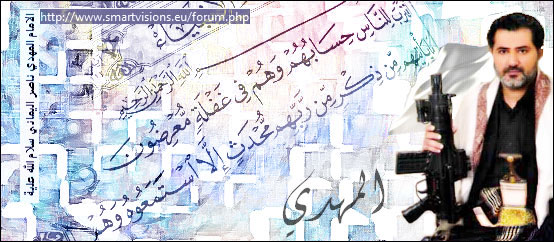 http://www.smartvisions.eu/forum.php
الامام المهدي ناصر اليماني سلام الله علية
الأنبياء
بسم الله الرحمن الرحيم
اقْتَرَبَ لِلنَّاسِ حِسَابُهُمْ وَهُمْ فِي غَفْلَةٍ مُّعْرِضُونَ
مَا يَأْتِيهِم مِّن ذِكْرٍ مِّن رَّبِّهِم مُّحْدَثٍ إِلَّا اسْتَمَعُوهُ وَهُمْ
المهدي